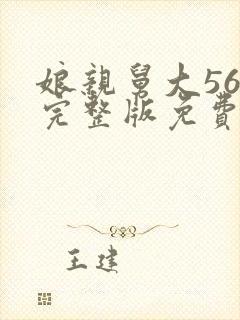 娘親舅大56
完整版免費
王建